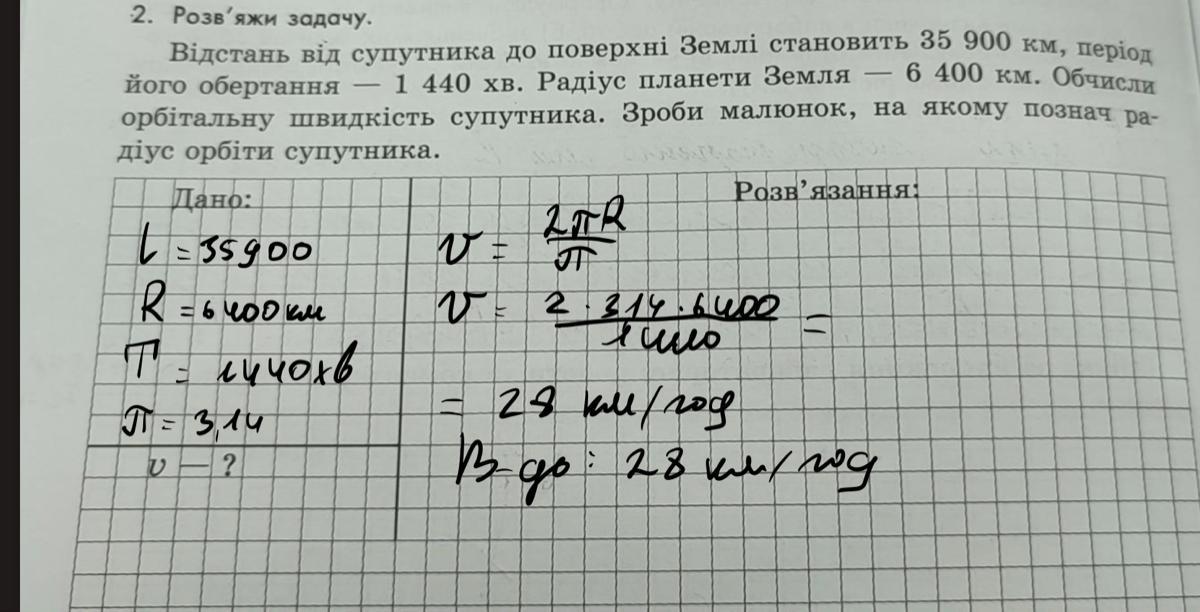 2. Розв'яжи задачу.
Відстань від супутника до поверхні Землі становить 35 900 км, період
його обертання — 1 440 хв. Радіус планети Земля — 6 400 км. Обчисли
орбітальну швидкість супутника. Зроби малюнок, на якому познач ра-
діус орбіти супутника.
Дано:
Розв'язання:
l = 35900
R = 6400км
T = 1440хв
П = 3,14
v — ?
v = 2πR / П
v = 2 · 314 · 6400 / 1440 =
= 28 км/год
В-дь: 28 км/год